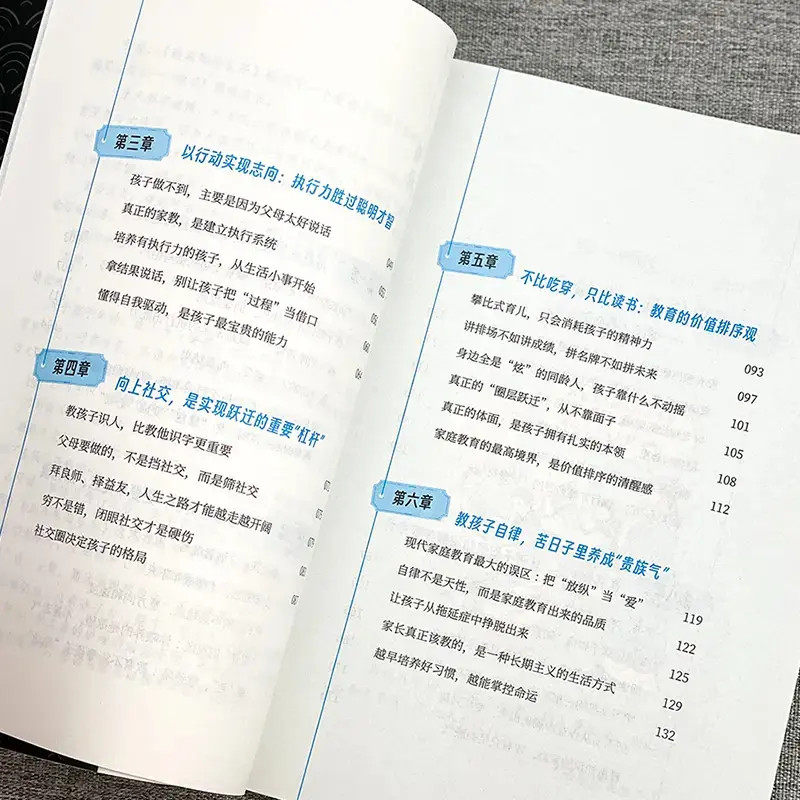 第三章
以行动实现志向：执行力胜过聪明才智
孩子做不到，主要是因为父母太好说话
真正的家教，是建立执行系统
培养有执行力的孩子，从生活小事开始
拿结果说话，别让孩子把“过程”当借口
懂得自我驱动，是孩子最宝贵的能力
第四章
向上社交，是实现跃迁的重要“杠杆”
教孩子识人，比教他识字更重要
父母要做的，不是挡社交，而是筛社交
拜良师、择益友，人生之路才能越走越开阔
穷不是错，闭眼社交才是硬伤
社交圈决定孩子的格局
第五章
不比吃穿，只比读书：教育的价值排序观
攀比式育儿，只会消耗孩子的精神力 093
讲排场不如讲成绩，拼名牌不如拼未来 097
身边全是“炫”的同龄人，孩子靠什么不动摇 101
真正的“圈层跃迁”，从不靠面子 105
真正的体面，是孩子拥有扎实的本领 108
家庭教育的最高境界，是价值排序的清醒感 112
第六章
教孩子自律，苦日子里养成“贵族气”
现代家庭教育最大的误区：把“放纵”当“爱” 119
自律不是天性，而是家庭教育出来的品质 122
让孩子从拖延症中挣脱出来 125
家长真正该教的，是一种长期主义的生活方式 129
越早培养好习惯，越能掌控命运 132